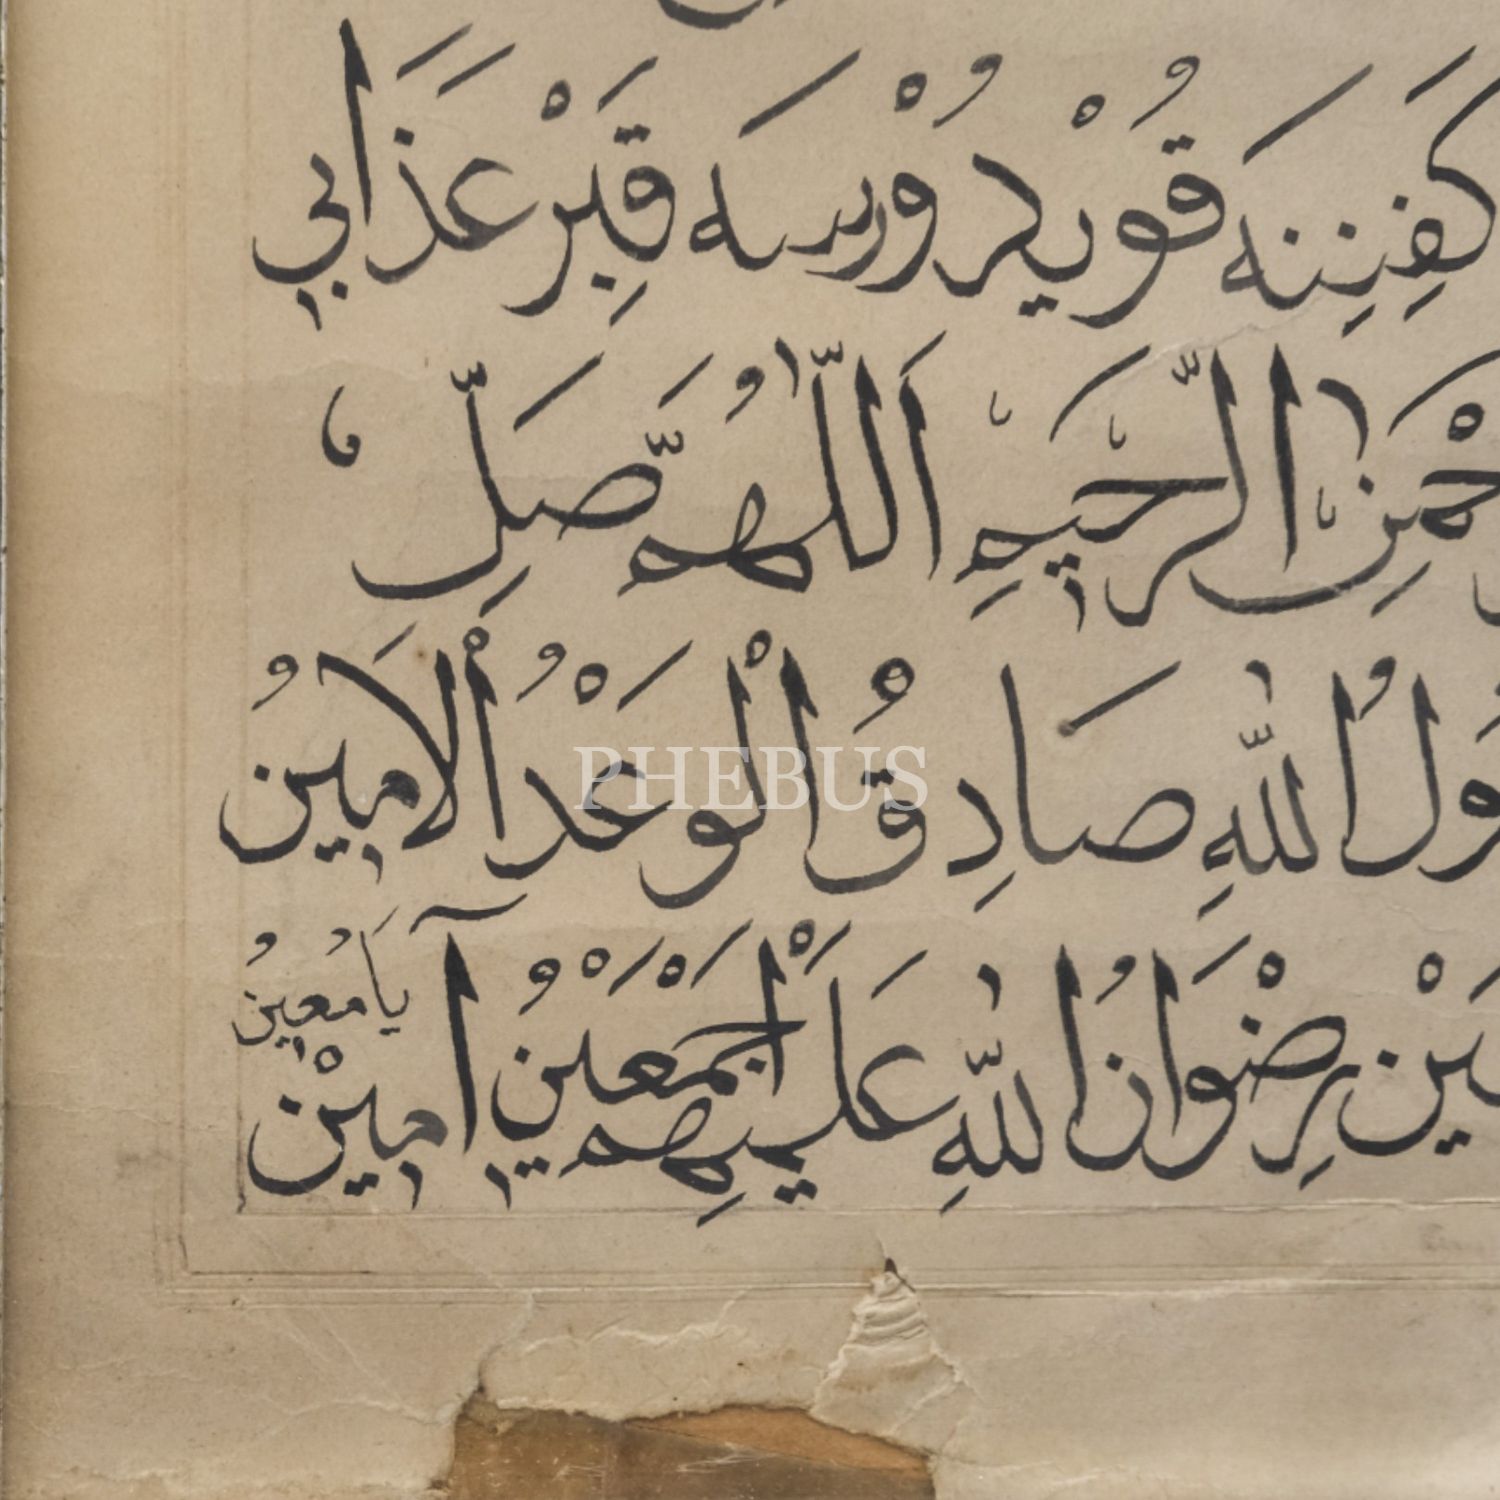 كَفِنِنَه قُويْدُرْسَه قَبِرْ عَذَابِي
حْمٰنِ الرَّحِيمِ اَللّٰهُمَّ صَلِّ
ولُ اللّٰهِ صَادِقُ الْوَعْدُ الْاَمِينُ
ينْ رِضْوَانُ اللّٰهِ عَلَيْهِمْ اَجْمَعِينُ آمِينْ
يَامُعِينُ
PHEBUS